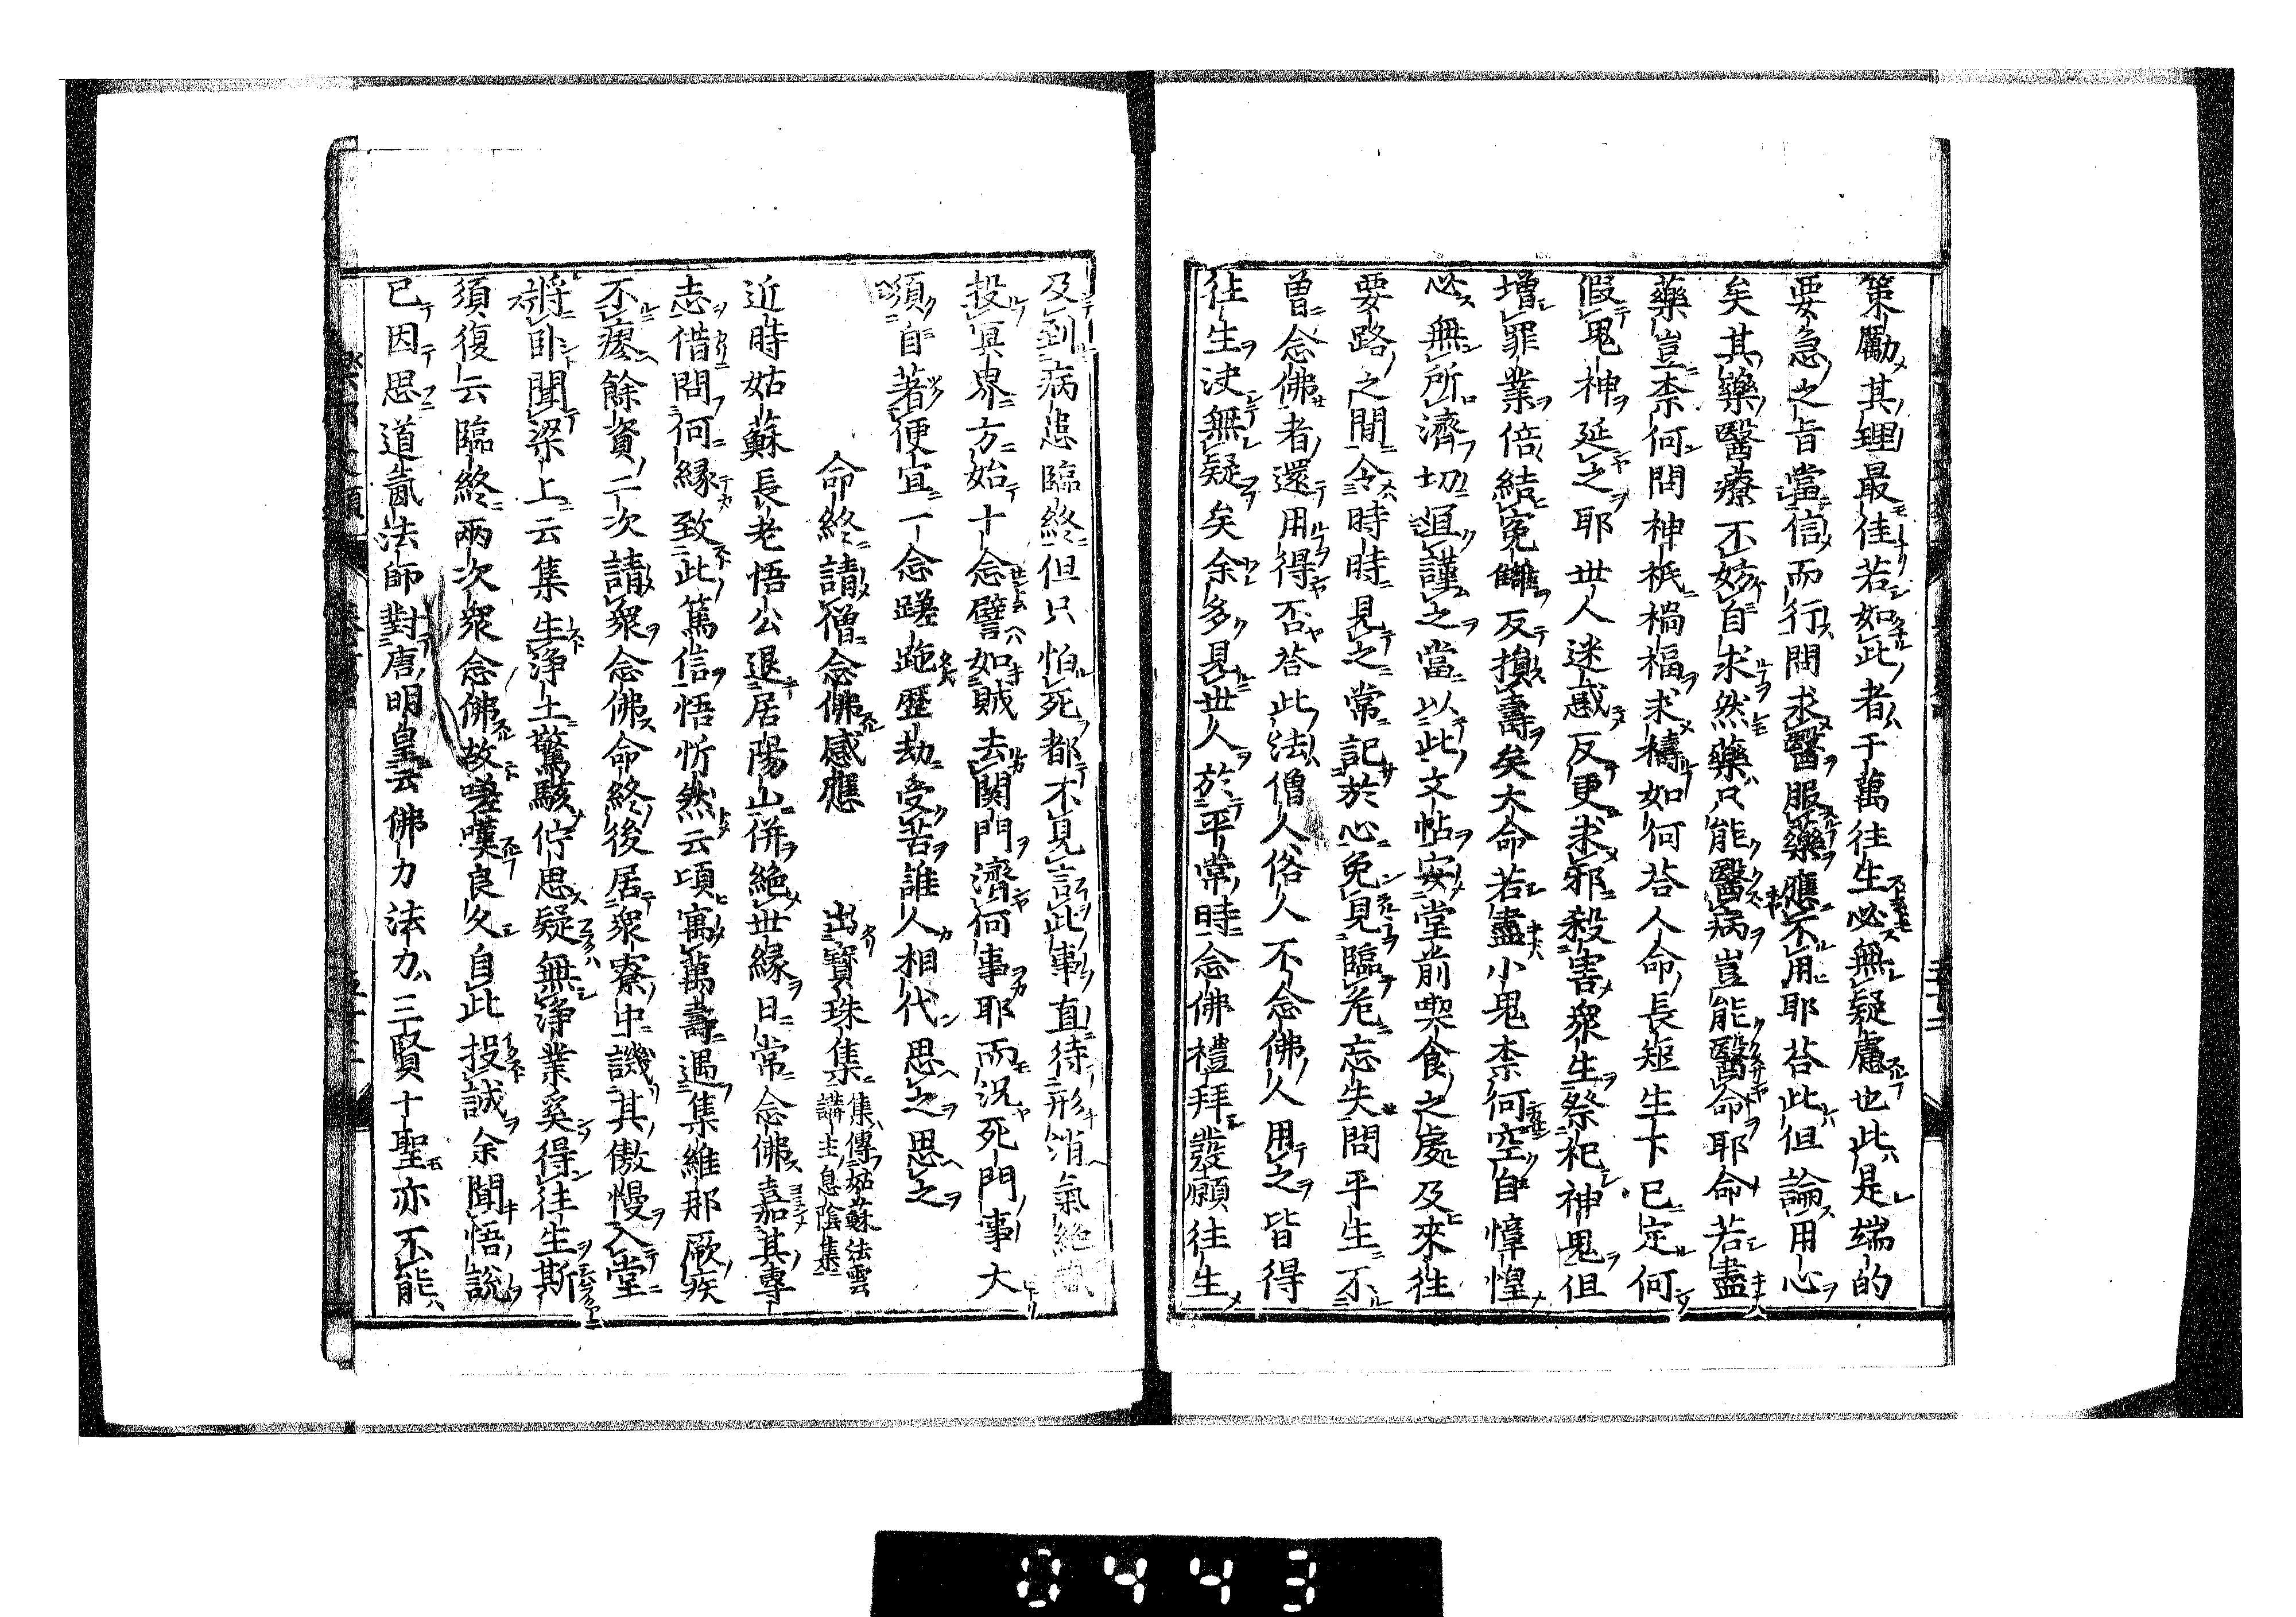 策勵其理最佳若如此者于萬往生必無疑慮也此是端的
要急之旨當信而行問求醫服藥應不用耶荅此但論用心
矣其藥醫療不妨自求然藥只能醫病豈能醫命耶命若盡
藥豈柰何問神祇禍福求禱如何荅人命長短生下已定何
假鬼神延之耶世人迷惑反更求邪殺害衆生祭祀神鬼但
増罪業倍結寃讎反損壽矣大命若盡小鬼柰何空自慞惶
必無所濟切冝謹之當以此文帖安堂前喫食之處及來往
要路之間令時時見之常記於心免見臨危忘失問平生不
曾念佛者還用得否荅此法僧人俗人不念佛人用之皆得
往生決無疑矣余多見世人於平常時念佛禮拜發願往生
及到病患臨終但只怕死都不見言此事直待形消氣絶識
投冥界方始十念譬如賊去関門濟何事耶而況死門事大
須自著便宜一念蹉跎歴劫受苦誰人相代思之思之
命終請僧念佛感應 出寳珠集 集傳姑蘇法雲講主息陰集
近時姑蘇長老悟公退居陽山併絶世縁日常念佛嘉其專
志借問何縁致此篤信悟忻然云頃寓萬壽遇集維那厥疾
不瘳餘資二次請衆念佛命終後居衆寮中譏其傲慢入堂
將卧聞梁上云集生浄土驚駭佇思疑無浄業奚得往生斯
須復云臨終兩次衆念佛故嗟嘆良久自此投誠余聞悟説
已因思道氤法師對唐明皇云佛力法力三賢十聖亦不能
樂邦文類